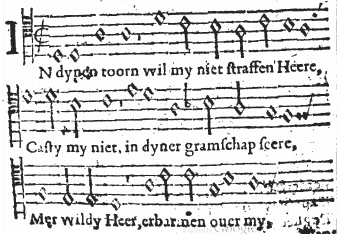 IN dynen toorn wil my niet straffen Heere,
Casty my niet, in dyner gramschap seere,
Mer wildy Heer, erbarmen ouer my,